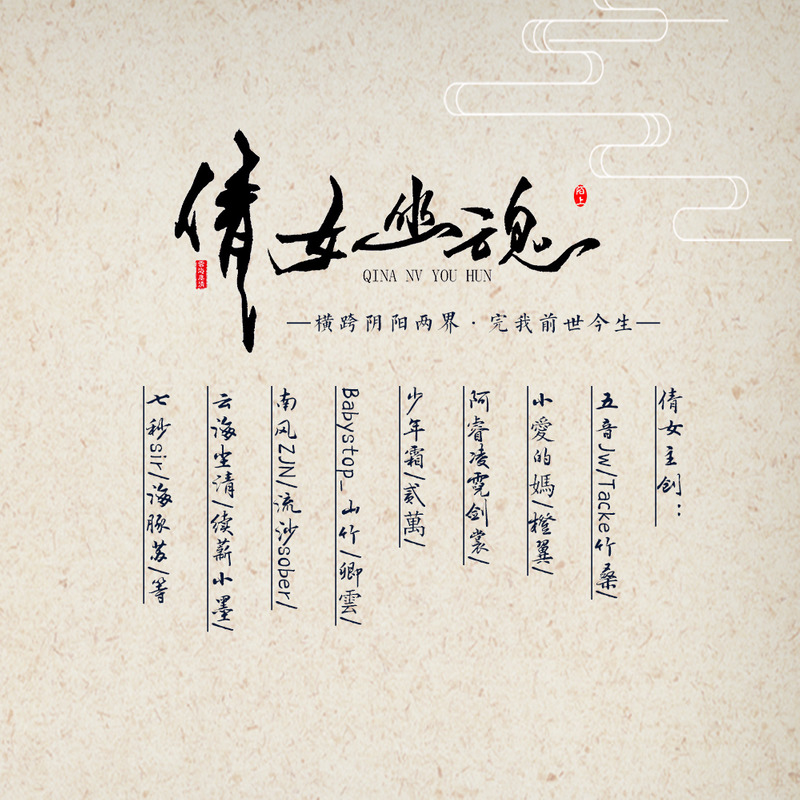 倩女幽魂
QINA NV YOU HUN
—横跨阴阳两界·完我前世今生—
陌上
倩女主创：
五音Jw/Tacke竹桑/
小愛的媽/橙翼/
阿睿凌霓剑裳/
少年霜/贰萬/
Babystop_山竹/卿雲/
南风ZJN/流沙sober/
云海尘清/续薪小墨/
七秒sir/海豚苏/等